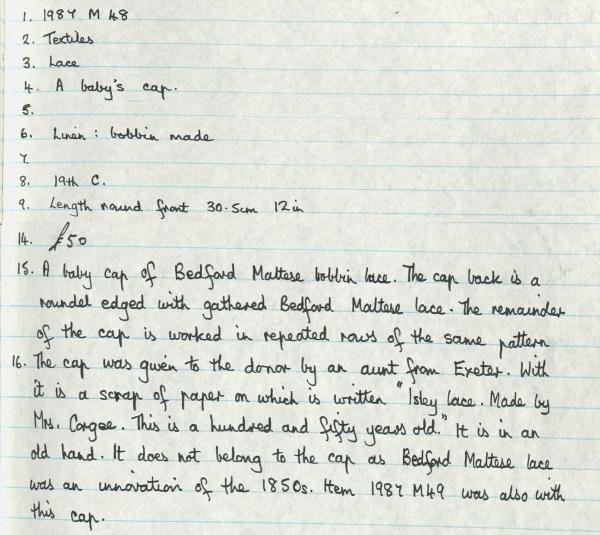 1. 1987 M 48
2. Textiles
3. Lace
4. A baby's cap.
5.
6. Linen : bobbin made
7.
8. 19th C.
9. Length round front 30.5cm 12in
14. £50
15. A baby cap of Bedford Maltese bobbin lace. The cap back is a
roundel edged with gathered Bedford Maltese lace. The remainder
of the cap is worked in repeated rows of the same pattern
16. The cap was given to the donor by an aunt from Exeter. With
it is a scrap of paper on which is written "Isley lace. Made by
Mrs. Corgee. This is a hundred and fifty years old." It is in an
old hand. It does not belong to the cap as Bedford Maltese lace
was an innovation of the 1850s. Item 1987 M49 was also with
this cap.